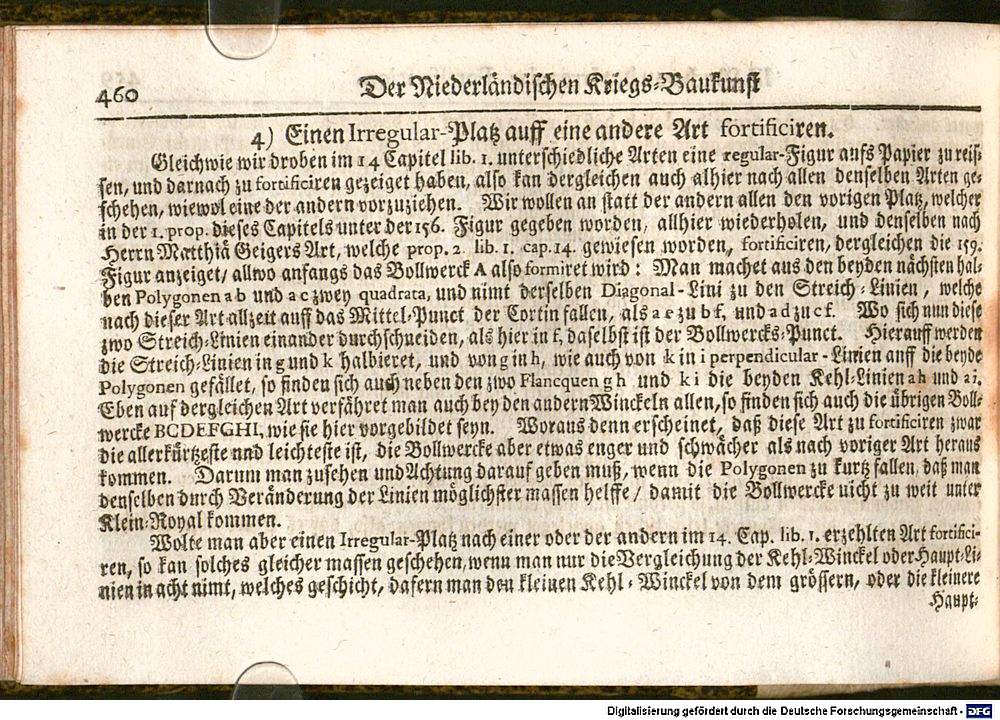 460
Der Niederländischen Kriegs-Baukunst
4) Einen Irregular-Platz auff eine andere Art fortificiren.
Gleichwie wir droben im 14 Capitel lib. 1. unterschiedliche Arten eine regular-Figur aufs Papier zu reis-
sen, und darnach zu fortificiren gezeiget haben, also kan dergleichen auch alhier nach allen denselben Arten ge-
schehen, wiewol eine der andern vorzuziehen. Wir wollen an statt der andern allen den vorigen Platz, welcher
in der 1. prop. dieses Capitels unter der 156. Figur gegeben worden, allhier wiederholen, und denselben nach
Herrn Matthiä Geigers Art, welche prop. 2. lib. 1. cap. 14. gewiesen worden, fortificiren, dergleichen die 159.
Figur anzeiget/ allwo anfangs das Bollwerck A also formiret wird: Man machet aus den beyden nächsten hal-
ben Polygonen a b und a c zwey quadrata, und nimt derselben Diagonal-Lini zu den Streich-Linien, welche
nach dieser Art allzeit auff das Mittel-Punct der Cortin fallen, als a e zu b f, und a d zu c f. Wo sich nun diese
zwo Streich-Linien einander durchschneiden, als hier in f, daselbst ist der Bollwercks-Punct. Hierauff werden
die Streich-Linien in g und k halbieret, und von g in h, wie auch von k in i perpendicular-Linien auff die beyde
Polygonen gefället, so finden sich auch neben den zwo Flancquen g h und k i die beyden Kehl-Linien a h und a i.
Eben auf dergleichen Art verfähret man auch bey den andern Winckeln allen, so finden sich auch die übrigen Boll-
wercke BCDEFGHI, wie sie hier vorgebildet seyn. Woraus denn erscheinet, daß diese Art zu fortificiren zwar
die allerkürtzeste und leichteste ist, die Bollwercke aber etwas enger und schwächer als nach voriger Art heraus
kommen. Darum man zusehen und Achtung darauf geben muß, wenn die Polygonen zu kurtz fallen, daß man
denselben durch Veränderung der Linien möglichster massen helffe/ damit die Bollwercke nicht zu weit unter
Klein-Royal kommen.
Wolte man aber einen Irregular-Platz nach einer oder der andern im 14. Cap. lib. 1. erzehlten Art fortifici-
ren, so kan solches gleicher massen geschehen, wenn man nur die Vergleichung der Kehl-Winckel oder Haupt-Li-
nien in acht nimt, welches geschicht, dafern man den kleinen Kehl-Winckel von dem grössern, oder die kleinere
Haupt-
Digitalisierung gefördert durch die Deutsche Forschungsgemeinschaft - DFG